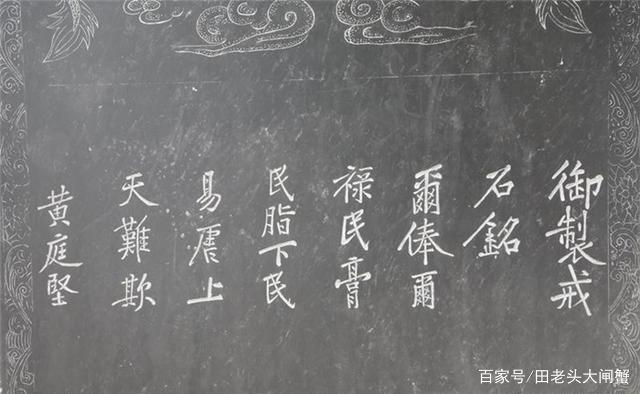 御製戒
石銘
爾俸爾
禄民膏
民脂下民
易虐上
天難欺
黄庭堅
百家号/田老头大闸蟹